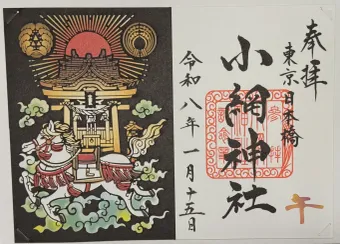 奉拝
東京日本橋
小網神社
令和八年一月十五日
午